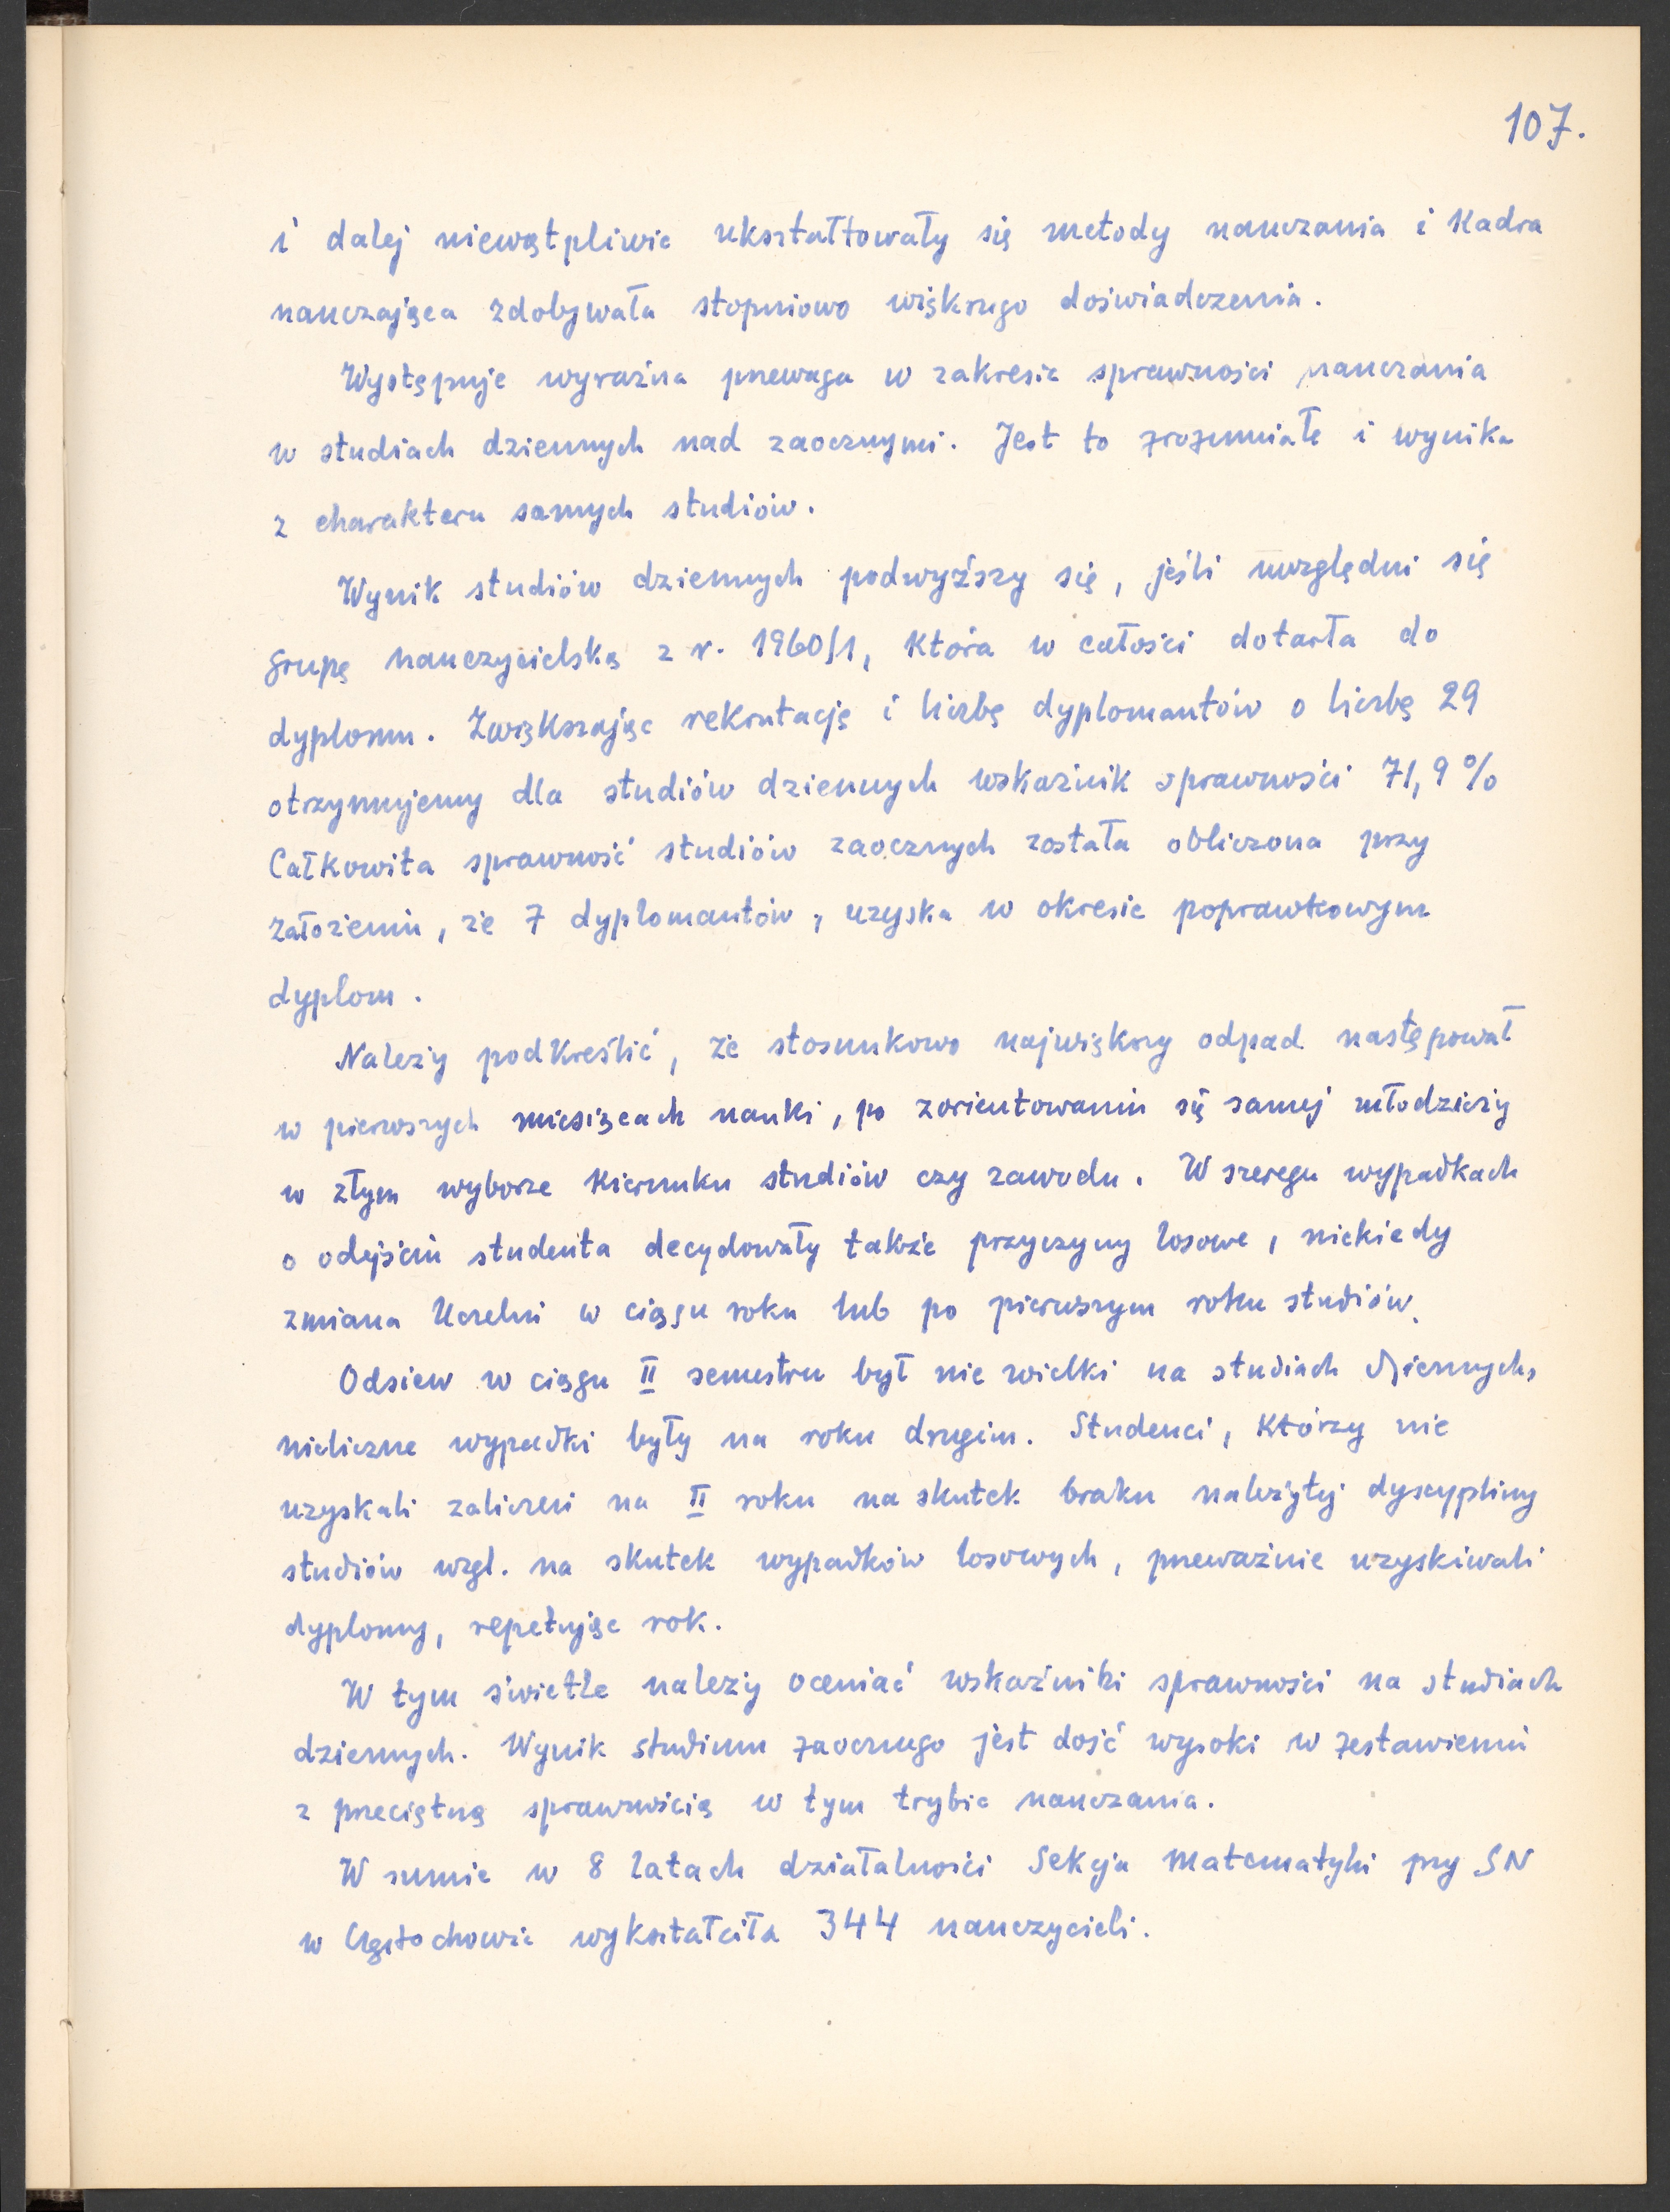 107.
i dalej niewątpliwie ukształtowały się metody nauczania i Kadra
nauczająca zdobywała stopniowo większego doświadczenia.
Występuje wyraźna przewaga w zakresie sprawności nauczania
w studiach dziennych nad zaocznymi. Jest to zrozumiałe i wynika
z charakteru samych studiów.
Wynik studiów dziennych podwyższy się, jeśli uwzględni się
grupę nauczycielską z r. 1960/1, która w całości dotarła do
dyplomu. Zwiększając rekrutację i liczbę dyplomantów o liczbę 29
otrzymujemy dla studiów dziennych wskaźnik sprawności 71,9%
Całkowita sprawność studiów zaocznych została obliczona przy
założeniu, że 7 dyplomantów, uzyska w okresie poprawkowym
dyplom.
Należy podkreślić, że stosunkowo największy odpad następował
w pierwszych miesiącach nauki, po zorientowaniu się samej młodzieży
w złym wyborze kierunku studiów czy zawodu. W szeregu wypadkach
o odejściu studenta decydowały także przyczyny losowe, niekiedy
zmiana Uczelni w ciągu roku lub po pierwszym roku studiów.
Odsiew w ciągu II semestru był nie wielki na studiach dziennych,
nieliczne wypadki były na roku drugim. Studenci, którzy nie
uzyskali zaliczeń na II roku na skutek braku należytej dyscypliny
studiów wzgl. na skutek wypadków losowych, przeważnie uzyskiwali
dyplomy, repetując rok.
W tym świetle należy oceniać wskaźniki sprawności na studiach
dziennych. Wynik studium zaocznego jest dość wysoki w zestawieniu
z przeciętną sprawnością w tym trybie nauczania.
W sumie w 8 latach działalności Sekcja Matematyki przy SN
w Częstochowie wykształciła 344 nauczycieli.